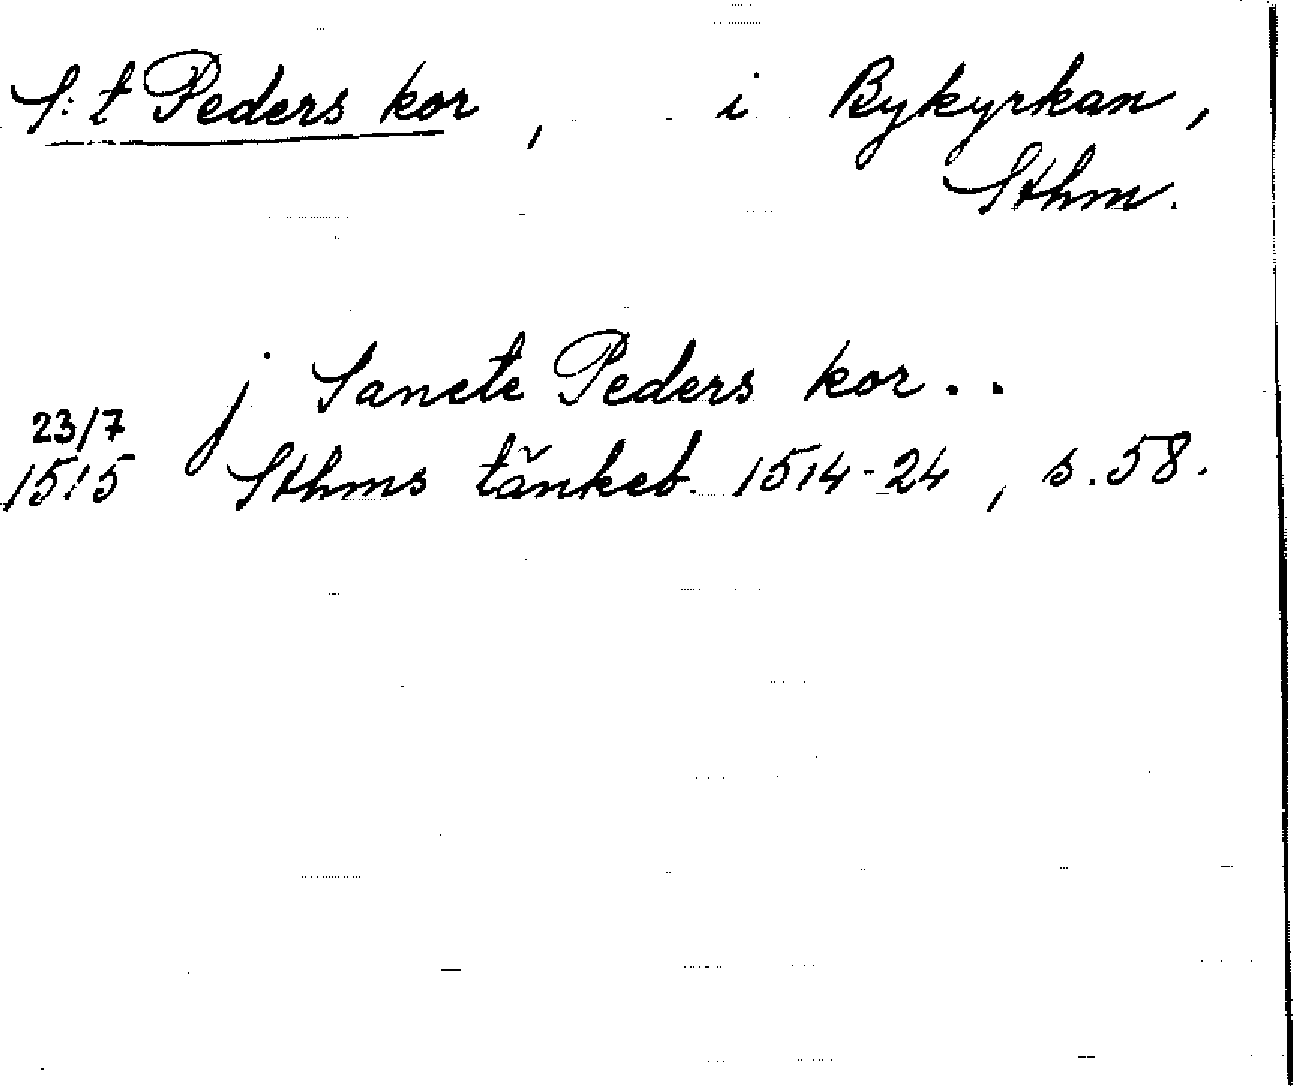 S:t Peders kor, i Bykyrkan,
Sthm.
j Sancte Peders kor..
23/7
1515 Sthms tänkeb. 1514-24, s. 58.